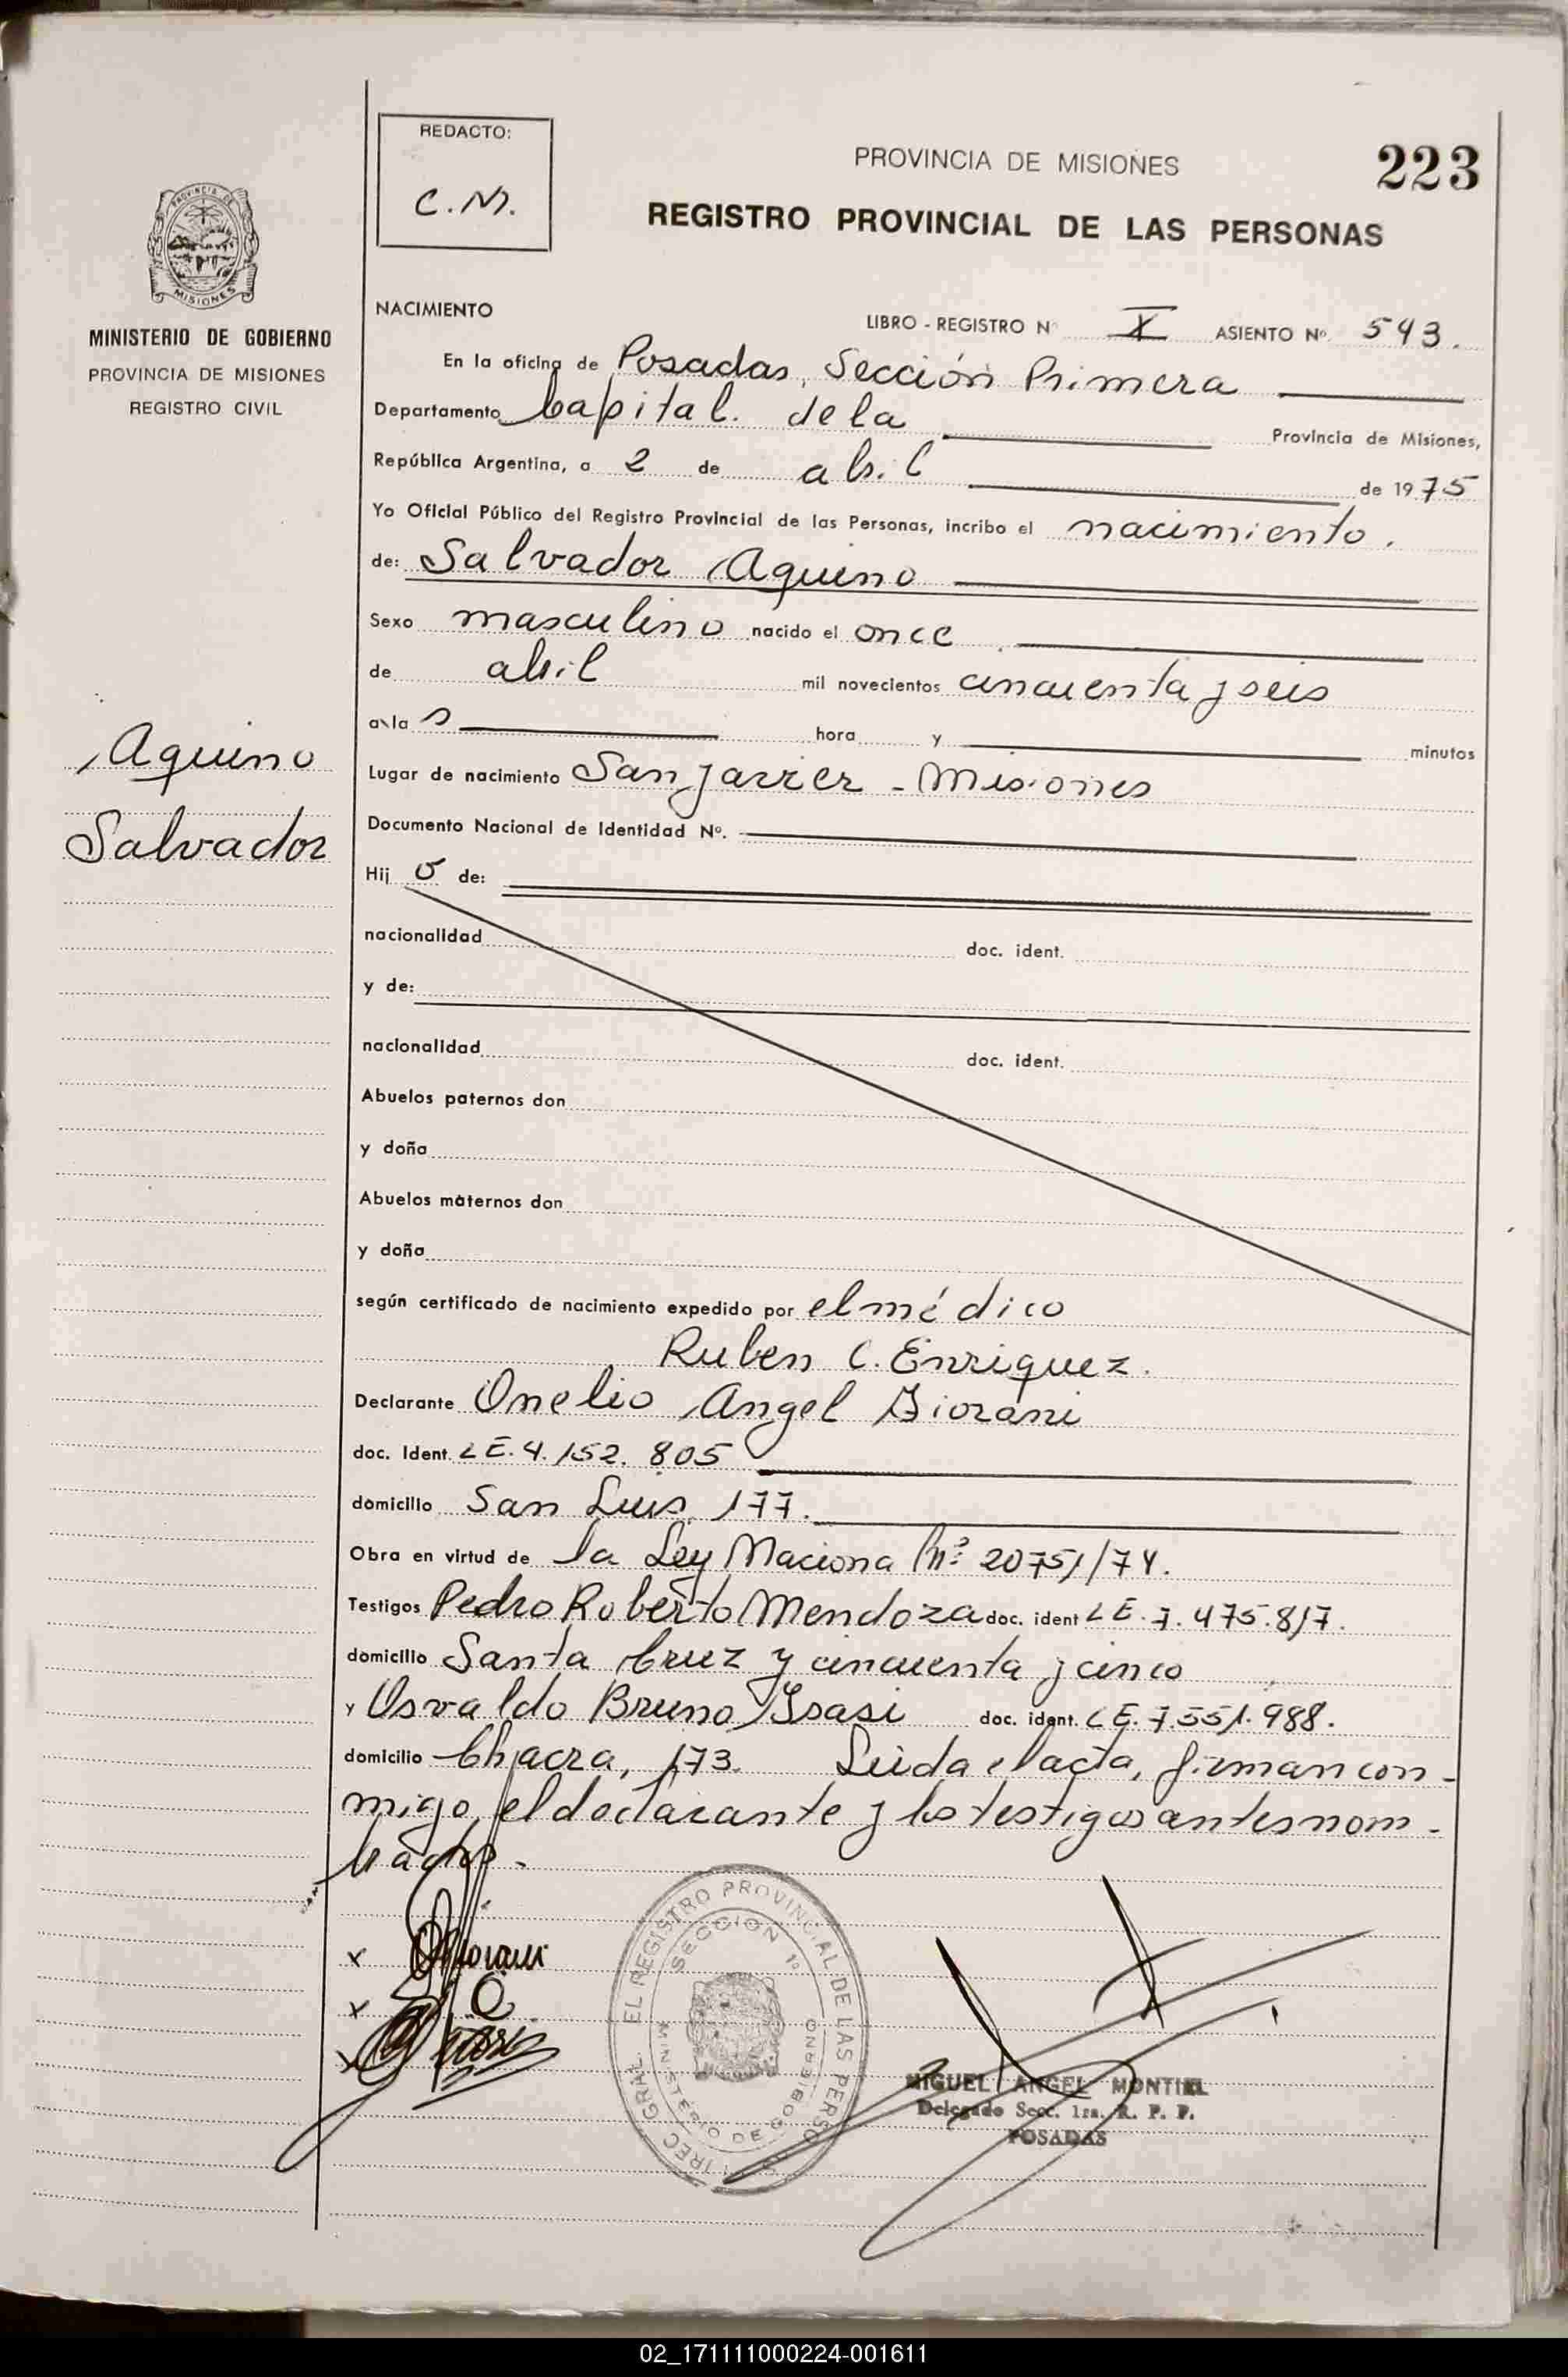 REDACTO:
C.M.
PROVINCIA DE MISIONES
223
REGISTRO PROVINCIAL DE LAS PERSONAS
PROVINCIA DE
MISIONES
MINISTERIO DE GOBIERNO
PROVINCIA DE MISIONES
REGISTRO CIVIL
NACIMIENTO
LIBRO - REGISTRO Nº X ASIENTO Nº 543.
En la oficina de Posadas, Sección Primera
Departamento Capital. de la Provincia de Misiones,
República Argentina, a 2 de abril de 1975
Yo Oficial Público del Registro Provincial de las Personas, incribo el nacimiento.
de: Salvador Aquino
Sexo masculino nacido el once
de abril mil novecientos cincuenta y seis
a la s hora y minutos
Aquino
Salvador
Lugar de nacimiento San Javier - Misiones
Documento Nacional de Identidad Nº.
Hij o de:
nacionalidad doc. ident.
y de:
nacionalidad doc. ident.
Abuelos paternos don
y doña
Abuelos maternos don
y doña
según certificado de nacimiento expedido por el médico
Ruben C. Enriquez.
Declarante Onelio Angel Giorani
doc. Ident. LE. 4.152.805
domicilio San Luis 177.
Obra en virtud de la Ley Naciona Nº 20751/74.
Testigos Pedro Roberto Mendoza doc. ident LE. 7.475.817.
domicilio Santa Cruz y cincuenta y cinco
y Osvaldo Bruno Isasi doc. ident. LE. 7.551.988.
domicilio Chacra, 173. Leida el acta, firman con-
migo, el declarante y los testigos antes nom-
brados.
DIREC. GRAL. EL REGISTRO PROVINCIAL DE LAS PERSO
SECCION 1ª
MINISTERIO DE GOBIERNO
MIGUEL ANGEL MONTIEL
Delegado Secc. 1ra. R. P. P.
POSADAS
02_171111000224-001611